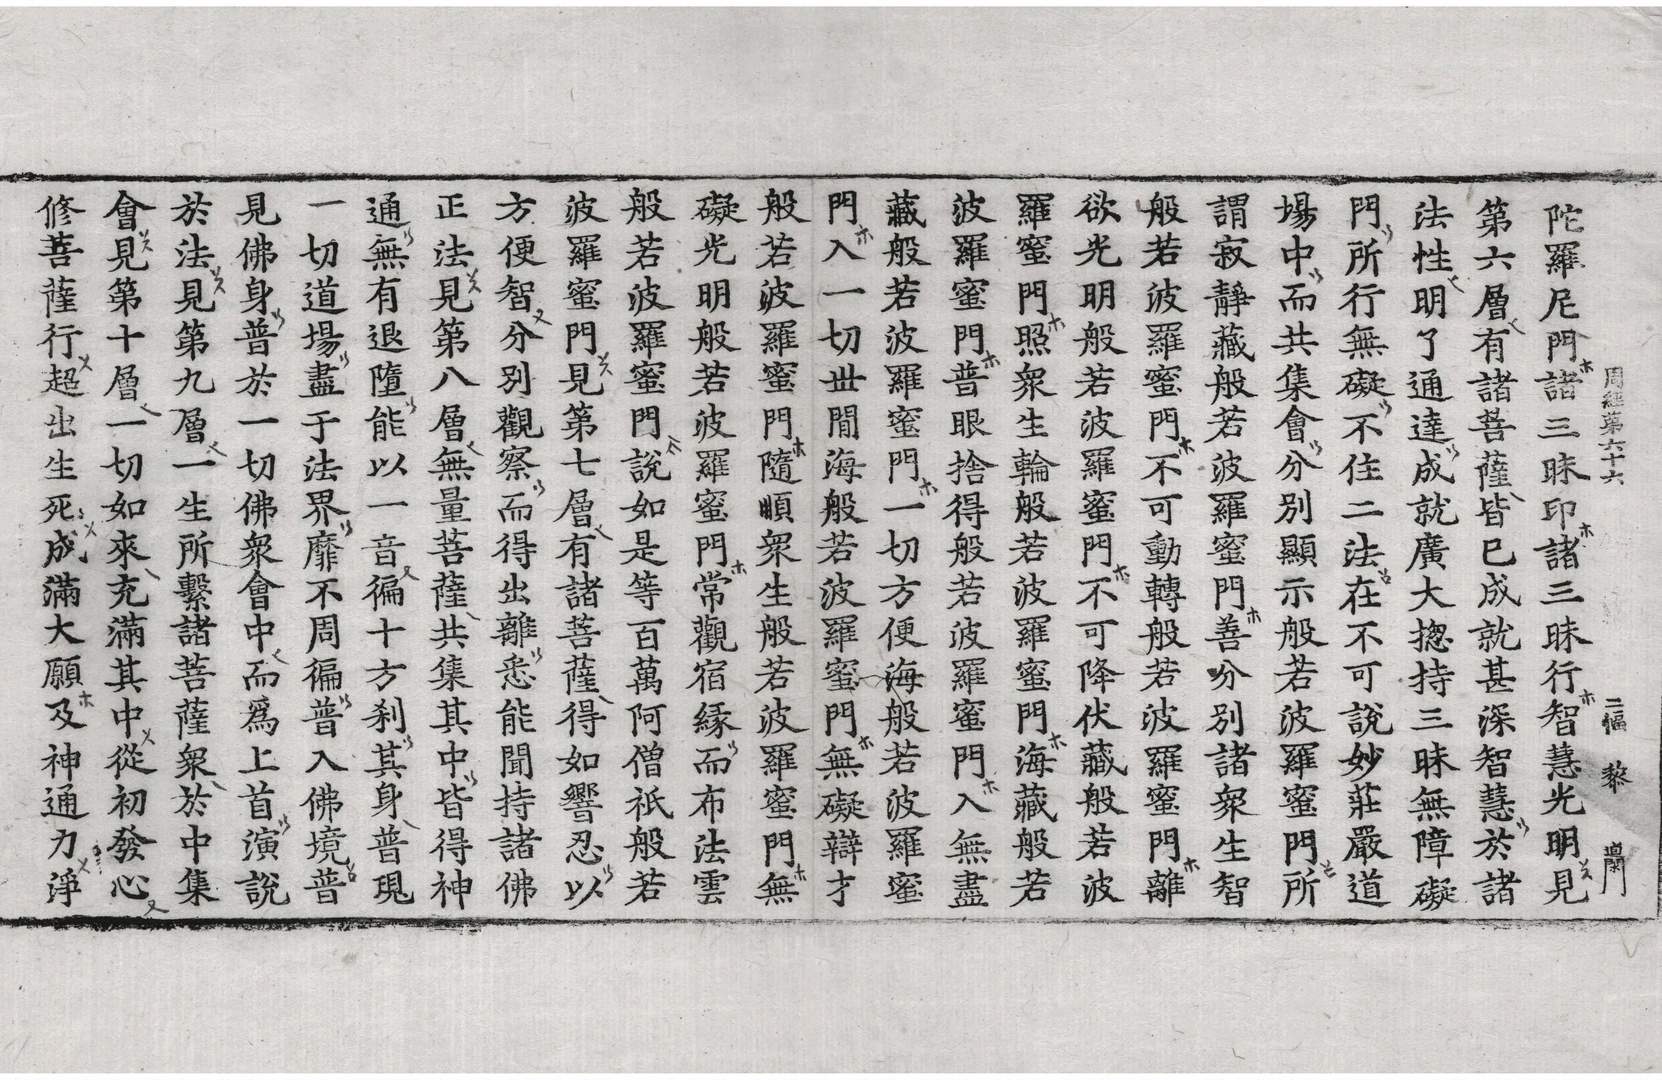 周經第六十六 二幅 黎 蘭
陀羅尼門諸三昧印諸三昧行智慧光明見
第六層有諸菩薩皆已成就甚深智慧於諸
法性明了通達成就廣大捴持三昧無障礙
門所行無礙不住二法在不可說妙莊嚴道
場中而共集會分別顯示般若波羅蜜門所
謂寂靜藏般若波羅蜜門善分別諸衆生智
般若波羅蜜門不可動轉般若波羅蜜門離
欲光明般若波羅蜜門不可降伏藏般若波
羅蜜門照衆生輪般若波羅蜜門海藏般若
波羅蜜門普眼捨得般若波羅蜜門入無盡
藏般若波羅蜜門一切方便海般若波羅蜜
門入一切世間海般若波羅蜜門無礙辯才
般若波羅蜜門隨順衆生般若波羅蜜門無
礙光明般若波羅蜜門常觀宿緣而布法雲
般若波羅蜜門說如是等百萬阿僧祇般若
波羅蜜門見第七層有諸菩薩得如響忍以
方便智分別觀察而得出離悉能聞持諸佛
正法見第八層無量菩薩共集其中皆得神
通無有退墮能以一音徧十方刹其身普現
一切道場盡于法界靡不周徧普入佛境普
見佛身普於一切佛衆會中而爲上首演說
於法見第九層一生所繫諸菩薩衆於中集
會見第十層一切如來充滿其中從初發心
修菩薩行超出生死成滿大願及神通力淨